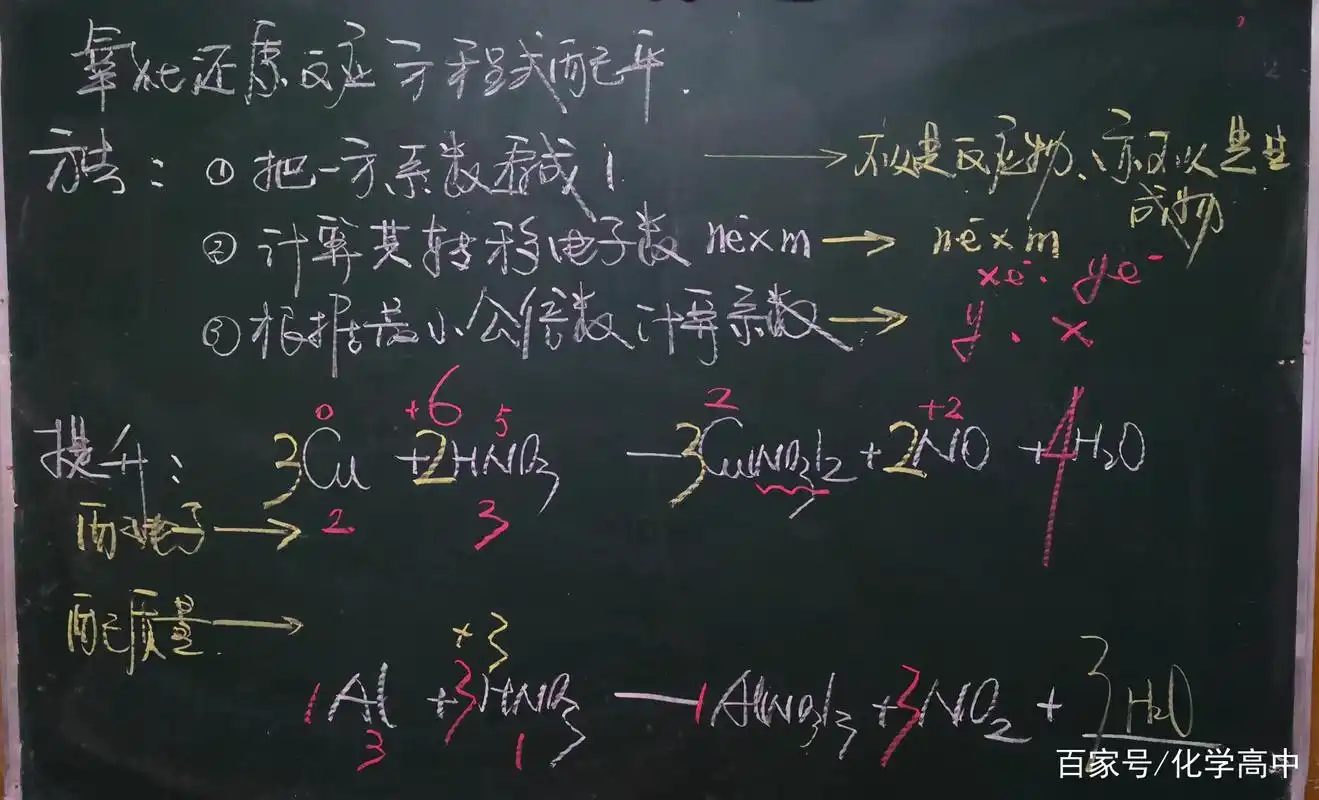 氧化还原反应方程式配平.
方法：① 把一方系数看成1 → 可以是反应物、亦可以是生成物
② 计算其转移电子数 ne×m → ne×m
xe⁻. ye⁻
③ 根据最小公倍数计算系数 → y . x
0 +6 5 2 +2
提升： 3Cu +2HNO₃ — 3Cu(NO₃)₂ +2NO +4H₂O
2 3
配电子 →
配质量. →
+3
1Al +3HNO₃ — 1Al(NO₃)₃ +3NO₂ + 3H₂O
3 1
百家号/化学高中